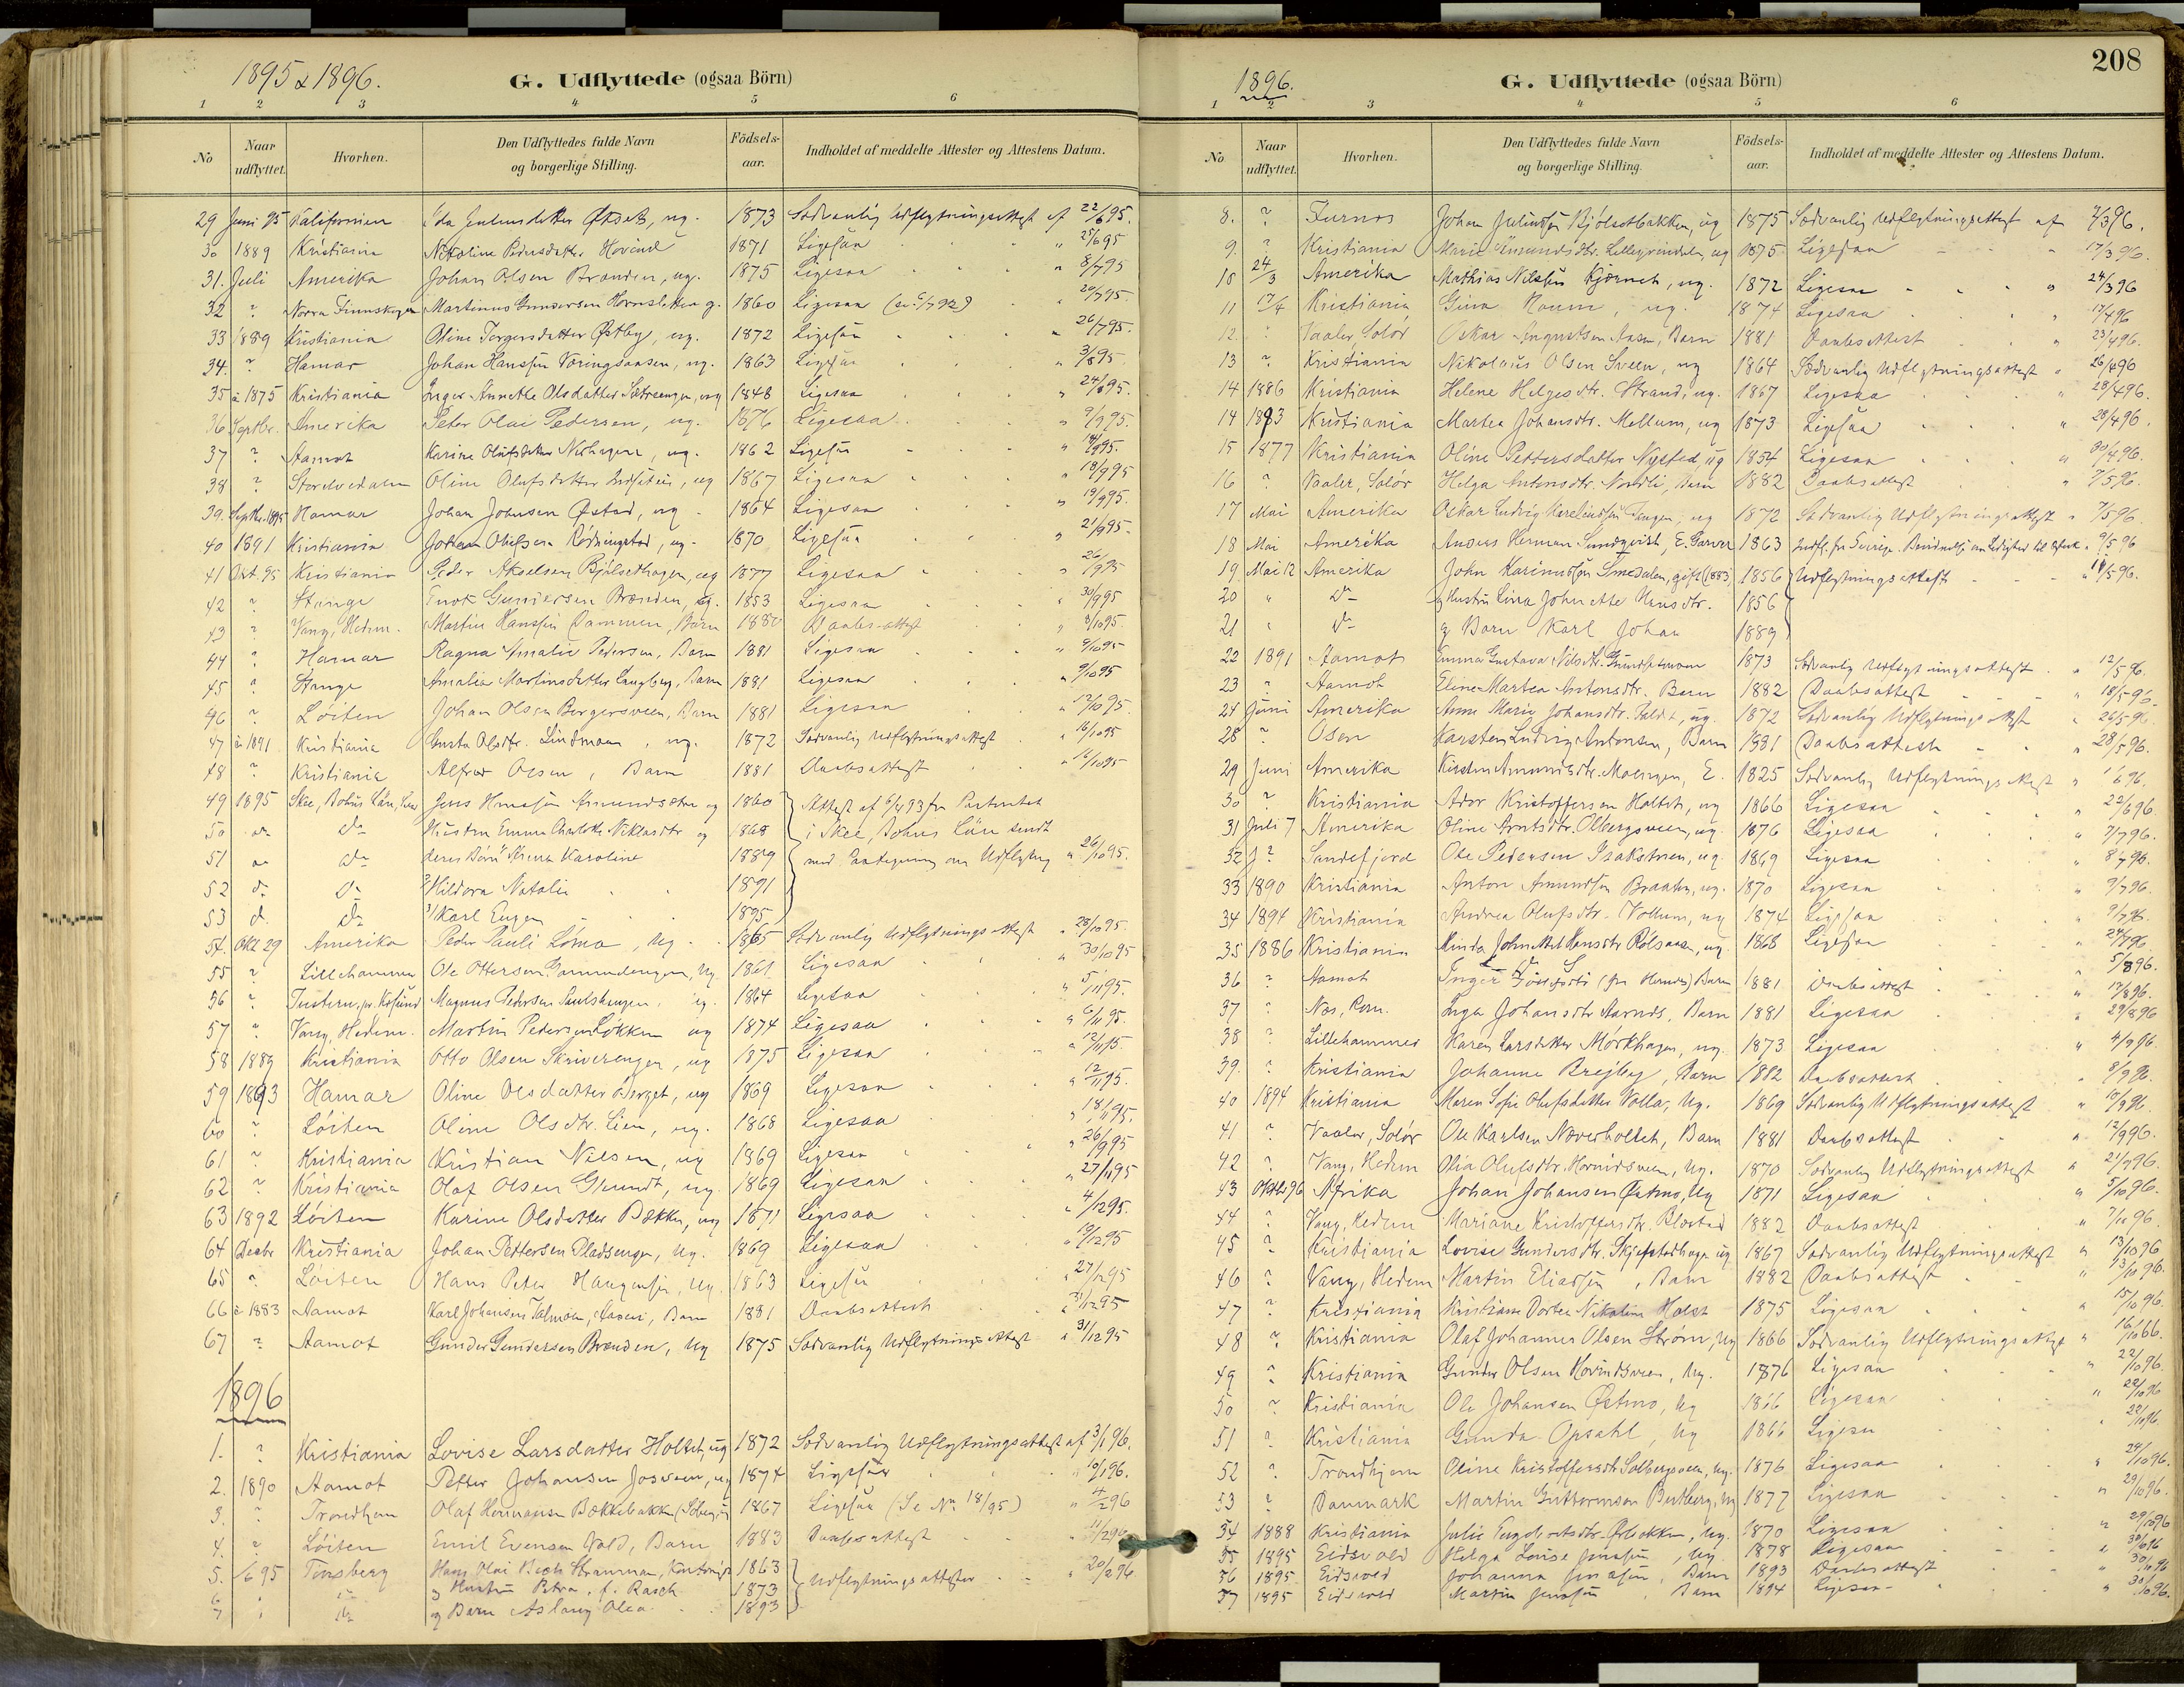 1895 & 1896.
G. Udflyttede (ogsaa Börn)
1 2 3 4 5 6
No Naar udflyttet. Hvorhen. Den Udflyttedes fulde Navn og borgerlige Stilling. Födsels-aar. Indholdet af meddelte Attester og Attestens Datum.
29 Juni 95 Kalifornien Ug. 1873 Sædvanlig Udflytningsattest af 22/6 95.
30 1889 Kristiania Nikoline Pedersdatter Hovind 1871 Ligesaa " 25/6 95
31. Juli Amerika Johan Olsen Brænden, ug. 1875 Ligesaa " 8/7 95
32 ? Martinus Gundersen 1860 Ligesaa " 20/7 95.
33 1889 Kristiania Oline Torgersdatter Østby, ug. 1872 Ligesaa " 26/7 95.
34. ? Hamar Johan Hanssen ug. 1863 Ligesaa " 3/8 95.
35 à 1875 Kristiania Inger Annette Olsdatter ug 1848 Ligesaa " 24/8 95.
36 Septbr. Amerika Peter Olai Pedersen, ug. 1876 Ligesaa " 9/9 95.
37 ? Aamot Karine Olufsdatter ug. 1862 Ligesaa
38 ? Storelvedalen Oline Olufsdatter ug 1867 Ligesaa " 18/9 95
39. Septbr. 1895 Hamar Johan Johnsen Østad, ug 1864 Ligesaa " 19/9 95.
40 1891 Kristiania Johan Olufsen ug. 1870 Ligesaa " 21/9 95.
41 Okt. 95 Kristiania Peder Akselsen Bjølsethagen, ug 1877 Ligesaa " 26/9 95
42 ? Stange Gundersen Brænden, ug. 1853 Ligesaa " 30/9 95
43 ? Vang, Hedm. Martin Hanssen Dammen, Barn 1880 Daabsattest " 3/10 95.
44 ? Hamar Ragna Amalie Pedersen, Barn 1881 Ligesaa " 9/10 95
45 ? Stange Amalia Martinsdatter Langberg, Barn 1881 Ligesaa " 9/10 95
46 ? Løiten Johan Olsen Bergersveen, Barn 1881 Ligesaa " 12/10 95.
47 à 1891 Kristiania Gusta Olsdtr. Lindmoen, ug. 1872 Sædvanlig Udflytningsattest " 16/10 95
48 ? Kristiania Alfred Olsen, Barn 1881 Daabsattest " 16/10 95
49 1895 Skee, Bohus Län, Jens Hanssen og 1860 Attest af 6/4 93 fra Pastoratet
50 do do Hustru Emma Charlotte Niklasdtr og 1868 i Skee, Bohus Län sendt
51 do do deres Børn Karoline 1889 med Paategning om Udflytning " 26/10 95.
52 do do 2/ Hildora Natalie 1891
53 do do 3/ Karl Eugen 1895
54. Okt 29 Amerika Peder Pauli Løma, Ug. 1865 Sædvanlig Udflytningsattest " 28/10 95.
55 ? Lillehammer Ole Ottersen Ug. 1861 Ligesaa " 30/10 95
56 ? Magnus Pedersen ug. 1864 Ligesaa " 5/11 95.
57 " Vang, Hedem. Martin Pedersen Løkken ug 1874 Ligesaa " 6/11 95.
58 1889 Kristiania Otto Olsen Skriverengen, ug 1875 Ligesaa " 12/11 95
59 1893 Hamar Oline Olsdatter Berget, ug 1869 Ligesaa " 12/11 95.
60 ? Løiten Oline Olsdtr. Lien, ug. 1868 Ligesaa " 18/11 95.
61 ? Kristiania Kristian Nilsen, ug 1869 Ligesaa " 26/9 95
62 ? Kristiania Olaf Olsen Grundt, ug. 1869 Ligesaa " 27/11 95
63 1892 Løiten Karine Olsdatter Bækken, ug 1871 Ligesaa " 4/12 95.
64 Decbr Kristiania Johan Pettersen Pladsengen, Ug. 1869 Ligesaa " 19/12 95
65 " Løiten Hans Peter Haugensen, Ug. 1863 Ligesaa " 27/12 95
66 à 1883 Aamot Karl Johansen Barn 1881 Daabsattest " 31/12 95
67 ? Aamot Gunder Gundersen Brænden, Ug 1875 Sædvanlig Udflytningsattest " 31/12 95
1896
1. ? Kristiania Lovise Larsdatter Holtet, ug 1872 Sædvanlig Udflytningsattest af 3/1 96.
2. 1890 Aamot Petter Johansen Josveen, ug 1874 Ligesaa " 10/1 96.
3. ? Trondhjem Olaf Hermansen Bækkebakken 1867 Ligesaa (Se No 18/95) " 4/2 96
4. ? Løiten Emil Evensen Barn 1883 Daabsattest " 11/2 96
5. Tønsberg Hans Olai Bech 1863
6 " do og Hustru Petra, f. Rasch 1873 Udflytningsattester " 20/2 96
7 " do og Barn Aslaug Olea 1893
208
1896.
G. Udflyttede (ogsaa Börn)
1 2 3 4 5 6
No Naar udflyttet. Hvorhen. Den Udflyttedes fulde Navn og borgerlige Stilling. Födsels-aar. Indholdet af meddelte Attester og Attestens Datum.
8. ? Furnes Johan Juliussen Bjølsetbakken, ug 1875 Sædvanlig Udflytningsattest af 7/3 96.
9. ? Kristiania Marie Amundsdtr. Lillegrindalen, ug 1875 Ligesaa 17/3 96.
10 24/3 Amerika Mathias Nilsen Kjærnet, ug. 1872 Ligesaa " 24/3 96
11 17/4 Kristiania Gina ug. 1874 Ligesaa " 17/4 96
12. ? Vaaler, Solør Oskar Augustsen Barn 1881 Daabsattest " 23/4 96.
13 ? Kristiania Nikolaus Olsen Sveen, ug 1864 Sædvanlig Udflytningsattest " 26/4 96
14 1886 Kristiania Helene Helgesdtr. Strand, ug. 1867 Ligesaa " 28/4 96.
14 1893 Kristiania Martea Johansdtr. Mellum, ug 1873 Ligesaa " 28/4 96.
15 1877 Kristiania Oline Pettersdatter ug 1854 Ligesaa " 30/4 96.
16 ? Vaaler, Solør Helga Antonsdtr. Nordli, Barn 1882 Daabsattest " 7/5 96.
17 Mai Amerika Oskar Ludvig Karelinssen Tangen, ug 1872 Sædvanlig Udflytningsattest " 7/5 96.
18 Mai Amerika Anders Herman Sundqvist, E. Garver 1863 Indfl. fra Sverige. 9/5 96
19 Mai 12 Amerika John Karinussen Smedalen, gift (1883) 1856 Udflytningsattest " 11/5 96.
20 " do og Hustru Lina Johnette Hansdtr. 1856
21 " do og Barn Karl Johan 1889
22 1891 Aamot Emma Gustava Nilsdtr. Grundsetmoen 1873 Sædvanlig Udflytningsattest " 12/5 96.
23 " Aamot Eline Martea Antonsdtr. Barn 1882 Daabsattest " 18/5 96.
24 Juni Amerika Anne Marie Johansdtr. ug. 1872 Sædvanlig Udflytningsattest " 26/5 96.
28 ? Osen Karsten Ludvig Antonsen, Barn 1881 Daabsattest " 28/5 96.
29 Juni Amerika Kirsten Amundsdtr. Moengen, E. 1825 Sædvanlig Udflytningsattest
30 ? Kristiania Ador Kristoffersen Holtet, ug 1866 Ligesaa " 22/6 96
31 Juli 7 Amerika Oline Arntsdtr. Olbergsveen, ug. 1876 Ligesaa " 7/7 96.
32 ? Sandefjord Ole Pedersen Isakstuen, ug. 1869 Ligesaa " 8/7 96.
33 1890 Kristiania Anton Amundsen Braaten, ug. 1870 Ligesaa " 9/7 96.
34 1894 Kristiania Andrea Olufsdtr. Vollum, ug 1874 Ligesaa " 9/7 96.
35 1886 Kristiania Minda Johnette Hansdtr ug. 1868 Ligesaa " 24/7 96.
36 ? Aamot Inger Barn 1881 Daabsattest " 5/8 96.
37 ? Næs, Rom. Inga Johansdtr Barn 1881 Ligesaa " 29/8 96
38 ? Lillehammer Karen Larsdatter Mørkhagen, ug. 1873 Ligesaa " 4/9 96.
39. ? Kristiania Johanne Brejby, Barn 1882 Daabsattest " 8/9 96.
40 1894 Kristiania Maren Sofie Olufsdatter Volla, Ug. 1869 Sædvanlig Udflytningsattest " 10/9 96.
41 ? Vaaler, Solør Ole Karlsen Næverholtet, Barn 1881 Daabsattest " 12/9 96.
42 ? Vang, Hedem Olia Olufsdtr. Hovindsveen, Ug. 1870 Sædvanlig Udflytningsattest " 21/9 96.
43 Oktbr 96 Afrika Johan Johansen Østmo, Ug 1871 Ligesaa " 5/10 96.
44 ? Vang, Hedem Mariane Kristoffersdtr. Blæstad 1882 Daabsattest " 7/10 96.
45 ? Kristiania Lovise Gundersdtr. Skjefstadhagen ug 1867 Sædvanlig Udflytningsattest " 13/10 96
46 ? Vang, Hedem Martin Eliassen, Barn 1882 Daabsattest " 13/10 96.
47 ? Kristiania Kristiane Dortea Nikoline Holst 1875 Ligesaa " 15/10 96.
48 ? Kristiania Olaf Johannes Olsen Strøm, Ug 1866 Sædvanlig Udflytningsattest " 16/10 66.
49 ? Kristiania Gunder Olsen Hovindsveen, Ug. 1876 Ligesaa " 22/10 96.
50 ? Kristiania Ole Johansen Østmo, Ug 1866 Ligesaa " 22/10 96
51 ? Kristiania Gunda Opsahl, Ug 1866 Ligesaa " 22/10 96.
52 ? Trondhjem Oline Kristoffersdtr Solbergsveen, Ug. 1876 Ligesaa " 24/10 96.
53 ? Danmark Martin Guttormsen Ug 1877 Ligesaa " 29/10 96.
54 1888 Kristiania Julie Engebretsdtr. Ørbekken, Ug. 1870 Ligesaa " 29/10 96
55 1895 Eidsvold Helga Louise Jonassen, Ug. 1878 Ligesaa " 30/10 96
56 1895 Eidsvold Johanna Jonassen, Barn 1893 Daabsattest " 30/10 96
57 1895 Eidsvold Martin Jonassen, Barn 1894 Ligesaa " 30/10 96.